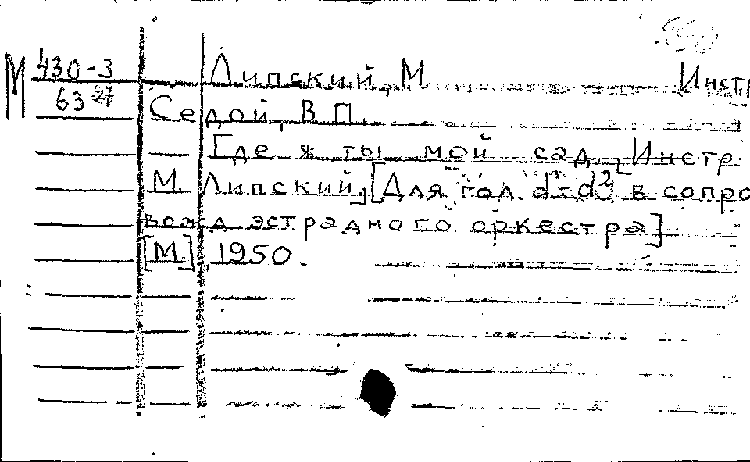 М 430-3 Липский, М Инстр
63
Седой, В П.
Где ж ты мой сад. Инстр.
М Липский, [Для гол. d¹-d² в сопро
вожд эстрадного оркестра]
[М], 1950.